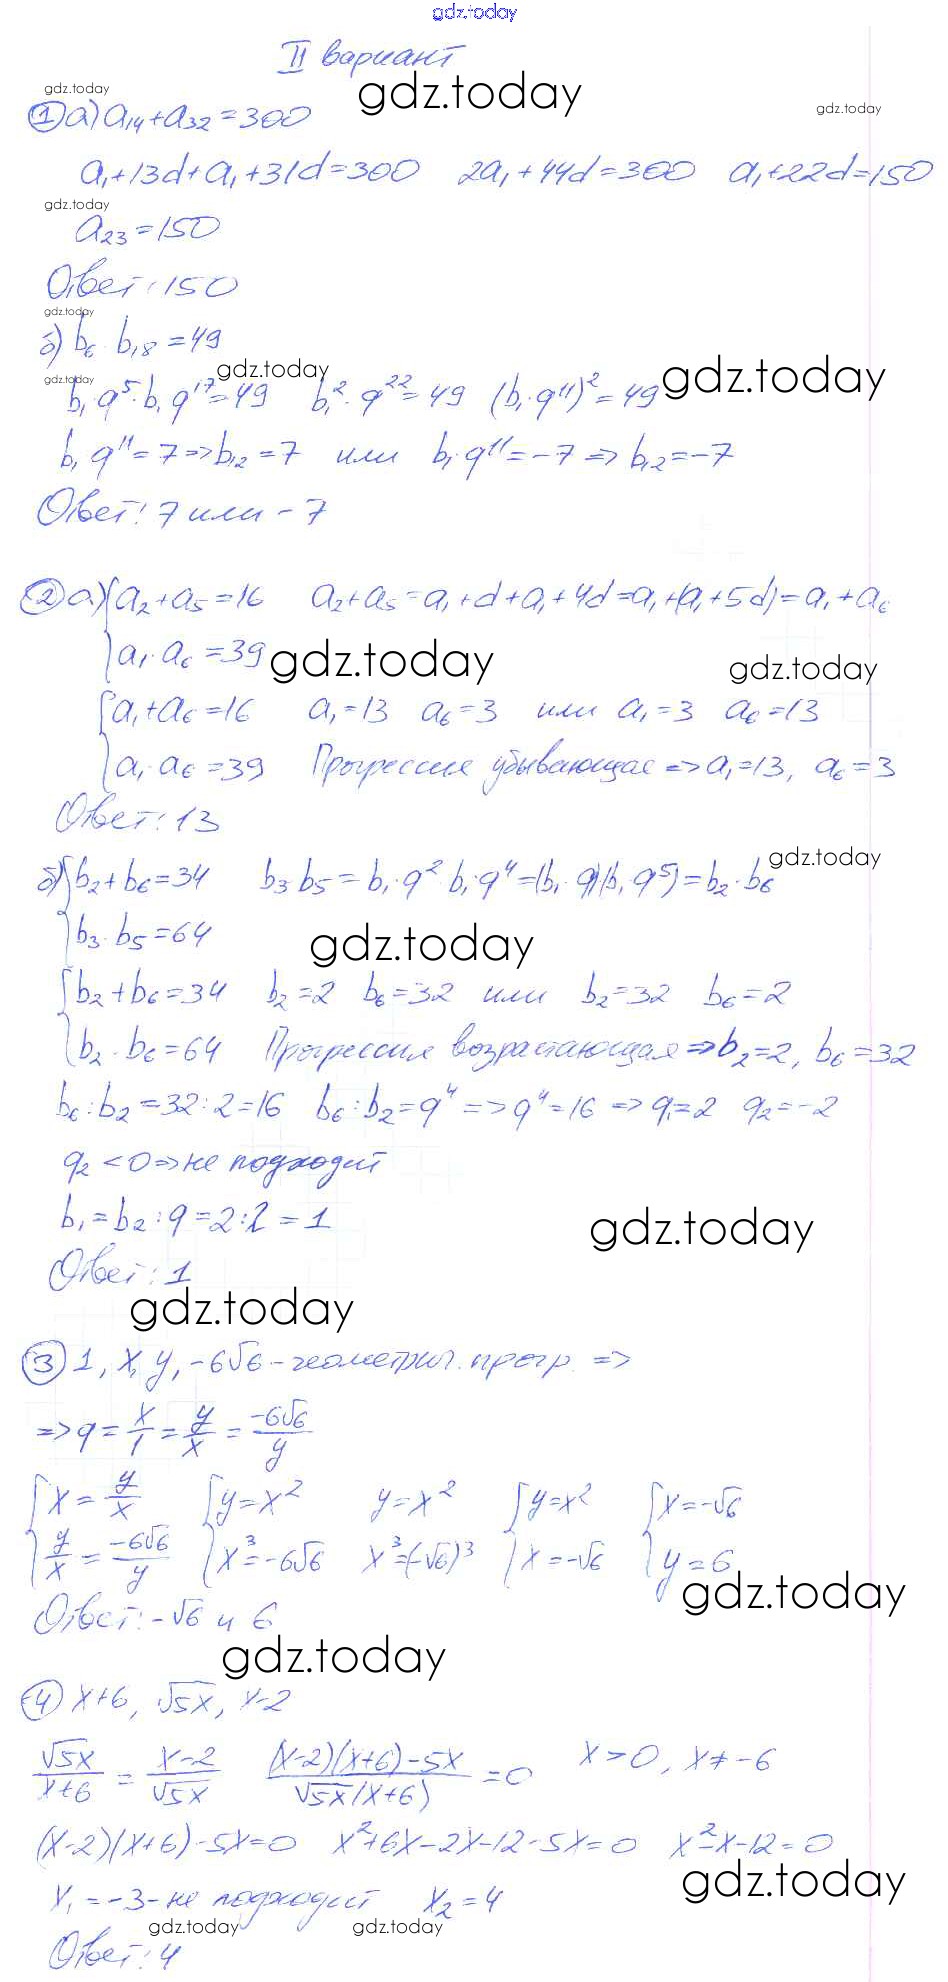 gdz.today
II вариант
gdz.today gdz.today gdz.today
① а) a₁₄+a₃₂=300
a₁+13d+a₁+31d=300 2a₁+44d=300 a₁+22d=150
gdz.today
a₂₃=150
Ответ: 150
gdz.today
б) b₆·b₁₈=49
gdz.today gdz.today gdz.today
b₁·q⁵·b₁q¹⁷=49 b₁²·q²²=49 (b₁·q¹¹)²=49
b₁q¹¹=7=>b₁₂=7 или b₁·q¹¹=-7=>b₁₂=-7
Ответ: 7 или -7
② а) { a₂+a₅=16 a₂+a₅=a₁+d+a₁+4d=a₁+(a₁+5d)=a₁+a₆
a₁·a₆=39
gdz.today gdz.today
{ a₁+a₆=16 a₁=13 a₆=3 или a₁=3 a₆=13
a₁·a₆=39 Прогрессия убывающая => a₁=13, a₆=3
Ответ: 13
gdz.today
б) { b₂+b₆=34 b₃b₅=b₁·q²·b₁·q⁴=(b₁·q)(b₁q⁵)=b₂·b₆
b₃·b₅=64
gdz.today
{ b₂+b₆=34 b₂=2 b₆=32 или b₂=32 b₆=2
b₂·b₆=64 Прогрессия возрастающая => b₂=2, b₆=32
b₆:b₂=32:2=16 b₆:b₂=q⁴=>q⁴=16=>q₁=2 q₂=-2
q₂<0=>не подходит
b₁=b₂:q=2:2=1
gdz.today
Ответ: 1
gdz.today
③ 1, x, y, -6√6 - геометрич. прогр. =>
=>q=x/1=y/x=-6√6/y
{ x=y/x { y=x² y=x² { y=x² { x=-√6
y/x=-6√6/y x³=-6√6 x³=(-√6)³ x=-√6 y=6
gdz.today
Ответ: -√6 и 6
gdz.today
④ x+6, √5x, x-2
√5x/x+6=x-2/√5x (x-2)(x+6)-5x/√5x(x+6)=0 x>0, x≠-6
(x-2)(x+6)-5x=0 x²+6x-2x-12-5x=0 x²-x-12=0
gdz.today
x₁=-3-не подходит x₂=4
gdz.today gdz.today
Ответ: 4